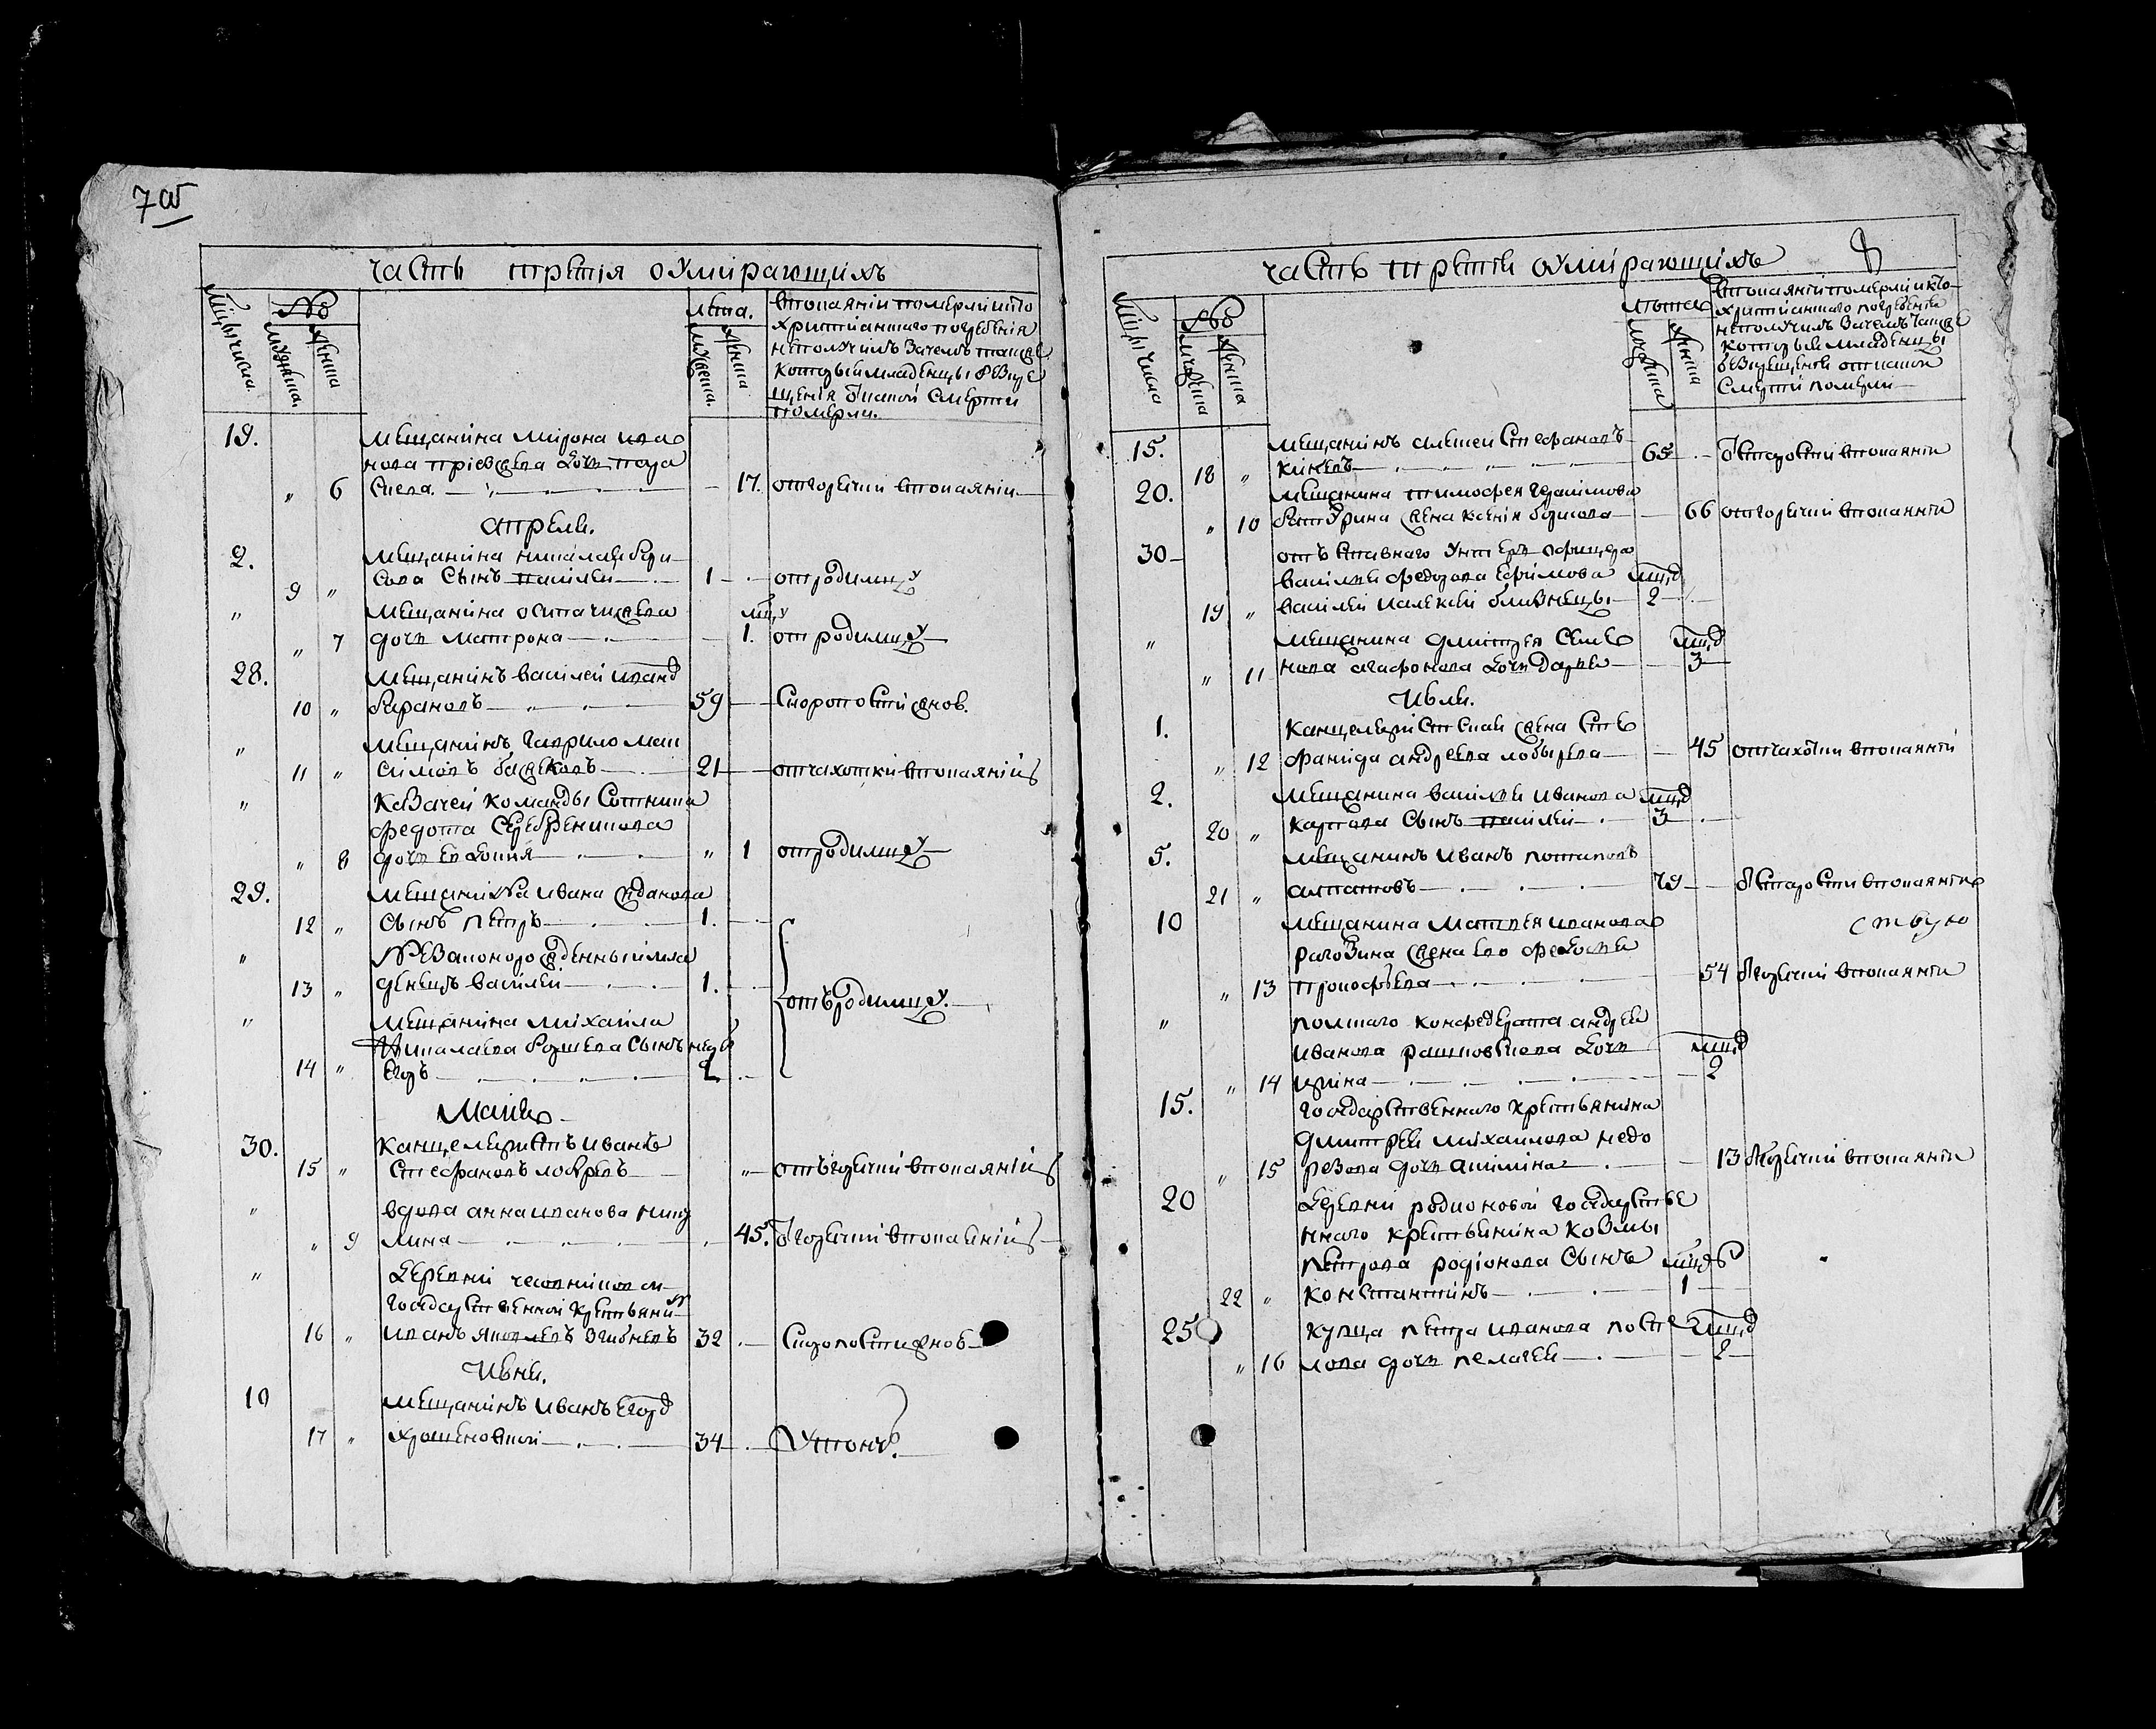 7 об
часть третія о умирающихъ
Мцы и числа.
№
мужеска.
женска
лѣта.
мужеска.
женска
в покаяніи померли и кто
христианскаго погребенія
не получилъ зачемъ также
которыи младенцы безкре
щенія и какой смерти
померли.
19.
мещанина мирона ива
нова приевжева дочь пара
" 6 скева. 17. от горячки в покаянии
априли.
2. мещанина николаи бори
9 " сова сынъ василеи 1 от родимцу
" мещанина осипа чижева мцу
" 7 дочь матрона 1. от родимцу
28. мещанинъ василеи иванд
10 " барановъ 59 скоропостижнов.
" мещанинъ гаврило мак
11 " симовъ баженовъ 21 от чахотки в покаянии
" казачеи команды сотника
федота серебреникова
" 8 дочь евдокия " 1 от родимцу
29. мещанина ивана жданова
12 " сынъ петръ 1.
" незаконорожденныи мла
13 " денецъ василеи 1. отъ родимцу.
" мещанина михаила
николаева сынъ недѣ
14 " егоръ 2
Маия
30. канцеляристъ иванъ
15 " стефановъ лобыревъ " отъ горячки в покаянии
" вдова анна иванова
" 9 лина 45. от горячки в покаянии
" деревни
государственной крестьянин
16 " иванъ яковлевъ 32 скоропостижнов
Июни.
10 мещанинъ иванъ егорд
17 " 34 Утонъ.
часть третія о умирающихъ
8
Мцы и числа
№
мужеска
женска
лѣта
мужеска
женска
в покаянии померли и кто
христианскаго погребения
не получилъ зачемъ также
которыи младенцы
безкрещения от какой
смерти померли
15. мещанинъ алексеи стефановъ
18 " 65 от старости в покаянии
20. мещанина тимофея герасимова
" 10 батурина жена ксения борисова 66 от горячки в покаянии
30 отъставнаго унтеръ офицера
василеи федорова ефимова мцд
19 " василеи иалексеи близнецы 2
" мещанина дмитрея семе мцд
" 11 нова агафонова дочь дарья 3
Июли.
1. канцеляристскаи жена сте
" 12 фанида андреева лобырева 45 от чахотки в покаянии
2. мещанина василеи иванова мцд
20 " карпова сынъ василеи 3
5. мещанинъ иванъ потаповъ
21 " алпатовъ 79 от старости в покаянии
10 мещанина матвея иванова ствую
рагозина жена ево федосья
" 13 прокофьева 54 от горячки в покаянии
" полшаго конфедерата андреи
иванова рашковскева дочь мцд
" 14 ирина 2
15. государственнаго крестьянина
дмитреи михаилова недо
" 15 резова дочь акилина 13 от горячки в покаянии
20 деревни родионовой государстве
ннаго крестьянина козмы
петрова родионова сынъ мцдъ
22 " константинъ 1
25 купца петра иванова посте мцд
" 16 лова дочь пелагеи 2